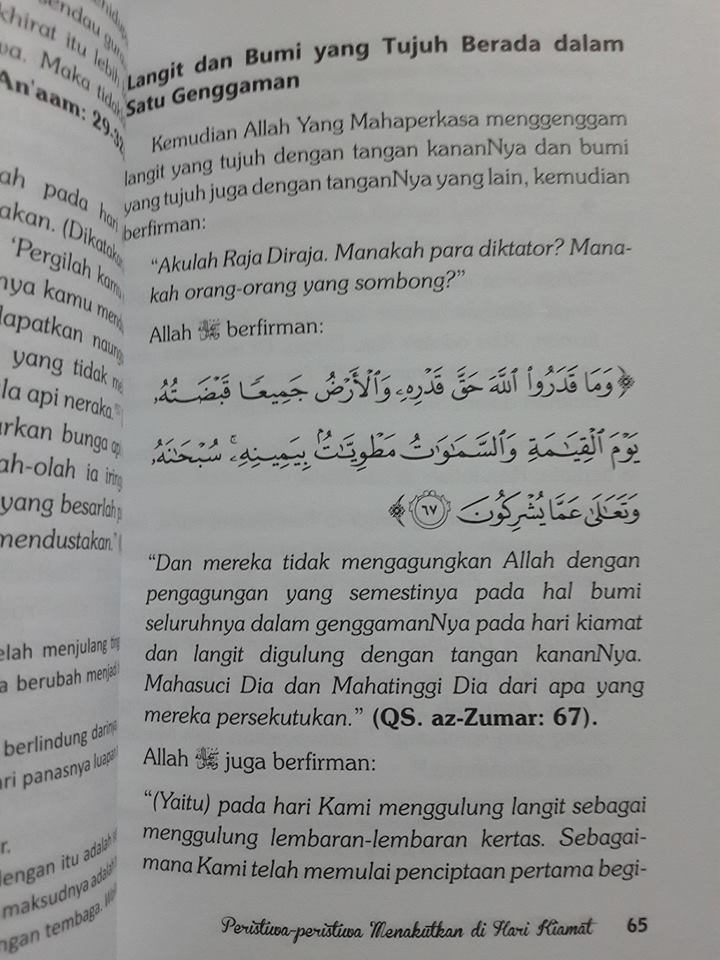 hidup
sendau
khirat itu lebih
wa. Maka
An'aam: 29-32
ah pada hari
akan. (Dikatakan
'Pergilah kamu
nya kamu
dapatkan
yang tidak
la api neraka.
arkan bunga api
ah-olah ia
yang besarlah
mendustakan.'
elah menjulang
a berubah menjadi
berlindung darinya
ari panasnya
r.
dengan itu adalah
maksudnya adalah
ngan tembaga.
Langit dan Bumi yang Tujuh Berada dalam
Satu Genggaman
Kemudian Allah Yang Mahaperkasa menggenggam
langit yang tujuh dengan tangan kananNya dan bumi
yang tujuh juga dengan tanganNya yang lain, kemudian
berfirman:
“Akulah Raja Diraja. Manakah para diktator? Mana-
kah orang-orang yang sombong?”
Allah ﷻ berfirman:
﴿وَمَا قَدَرُوا۟ ٱللَّهَ حَقَّ قَدْرِهِۦ وَٱلْأَرْضُ جَمِيعًا قَبْضَتُهُۥ
يَوْمَ ٱلْقِيَـٰمَةِ وَٱلسَّمَـٰوَٰتُ مَطْوِيَّـٰتٌۢ بِيَمِينِهِۦ ۚ سُبْحَـٰنَهُۥ
وَتَعَـٰلَىٰ عَمَّا يُشْرِكُونَ ٦٧﴾
“Dan mereka tidak mengagungkan Allah dengan
pengagungan yang semestinya pada hal bumi
seluruhnya dalam genggamanNya pada hari kiamat
dan langit digulung dengan tangan kananNya.
Mahasuci Dia dan Mahatinggi Dia dari apa yang
mereka persekutukan.” (QS. az-Zumar: 67).
Allah ﷻ juga berfirman:
“(Yaitu) pada hari Kami menggulung langit sebagai
menggulung lembaran-lembaran kertas. Sebagai-
mana Kami telah memulai penciptaan pertama begi-
Peristiwa-peristiwa Menakutkan di Hari Kiamat 65